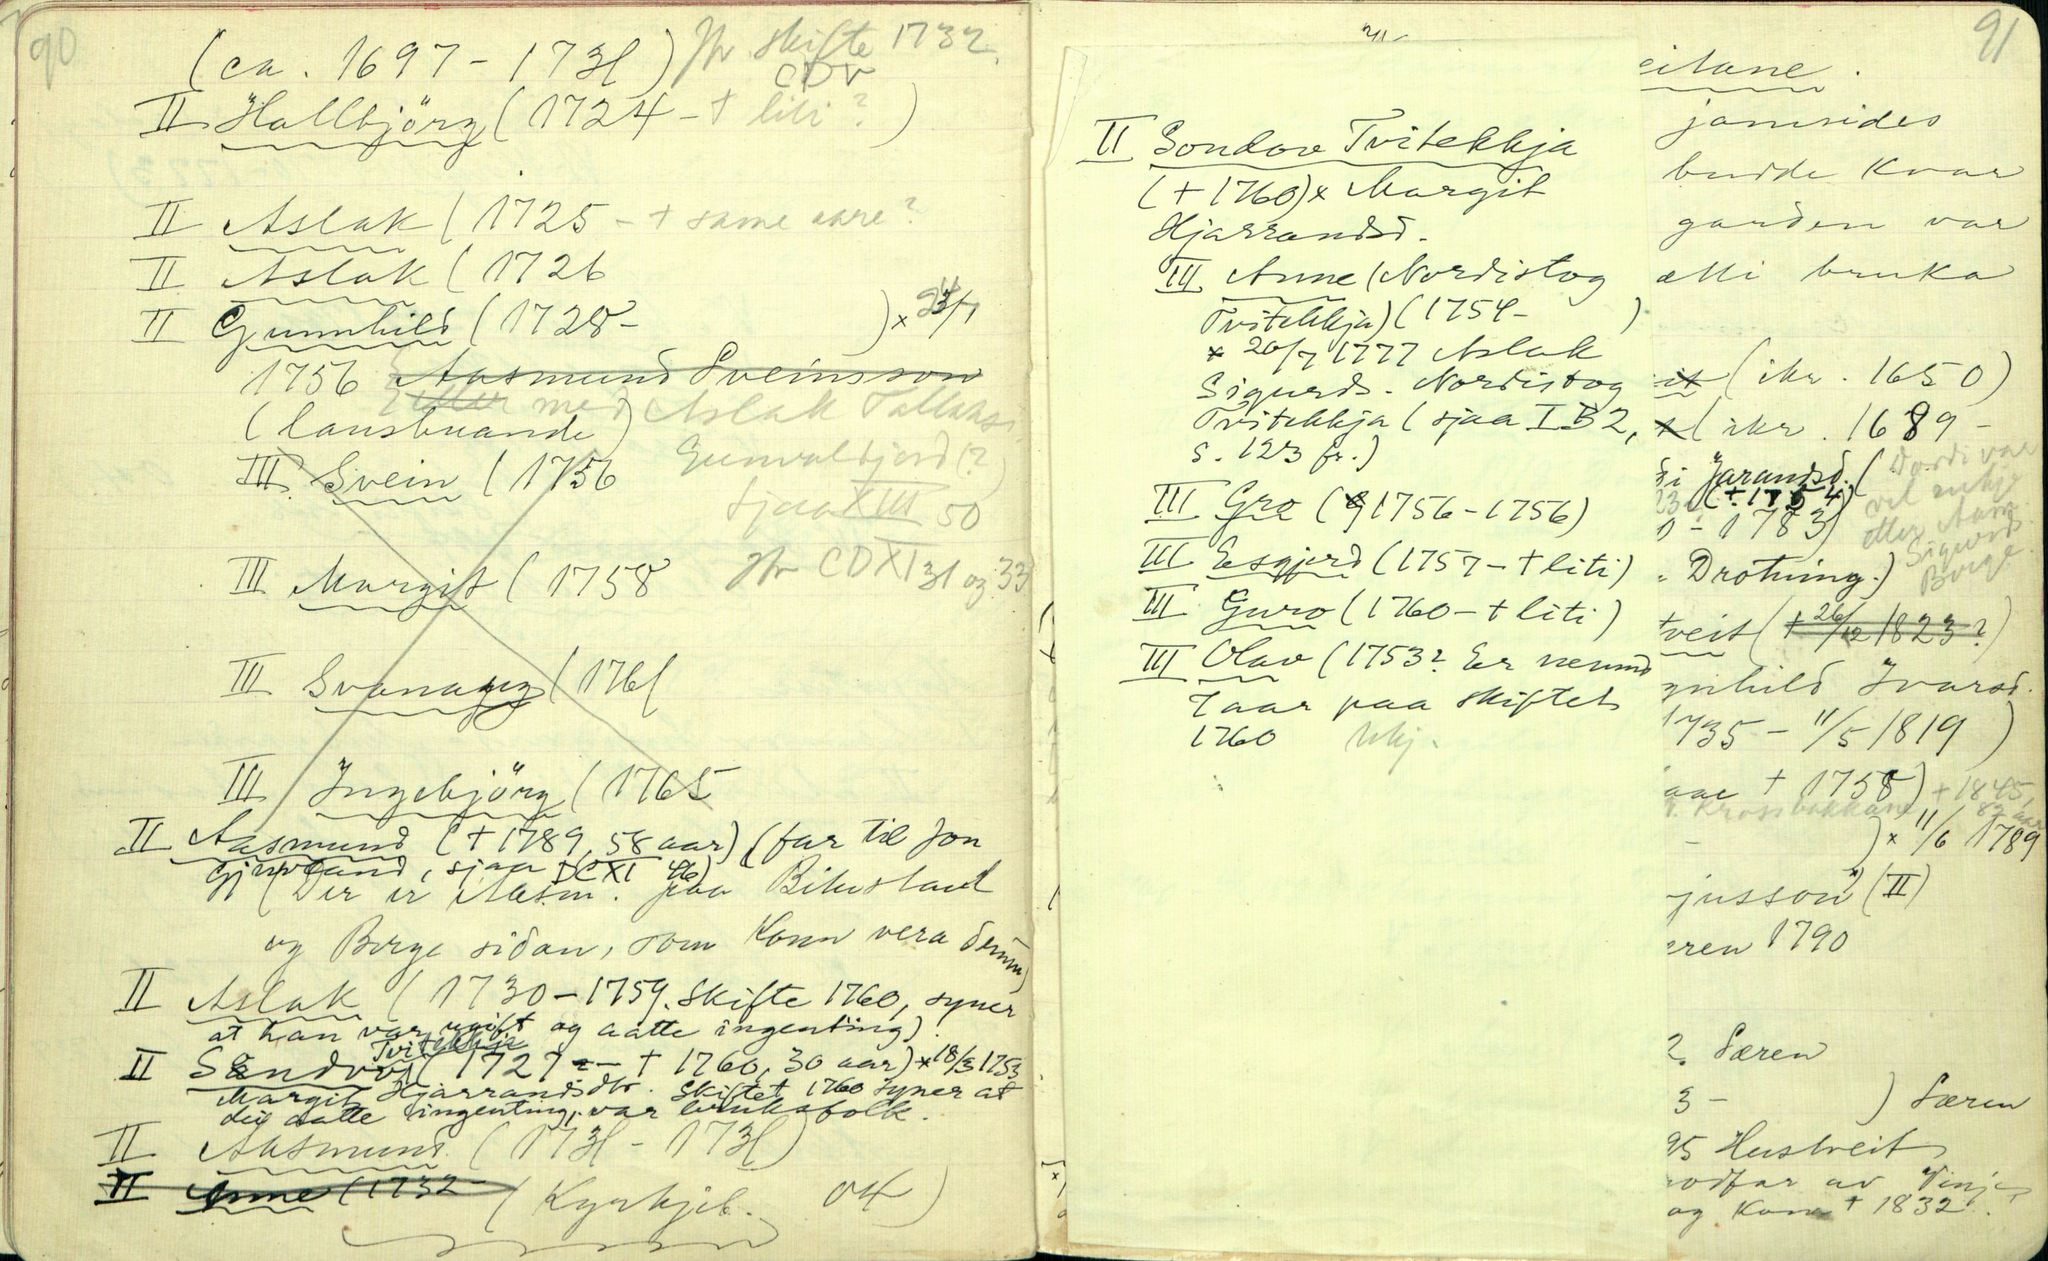 90
(ca. 1697 - 1731) Jfr skifte 1732
CDV
II Hallbjörg (1724 - + liti ?)
II Aslak (1725 - + same aare ?
II Aslak (1726
II Gunnhild (1728 - ) x 24/7
1756 Aasmund Sveinsson
(lausbuande) med Aslak Tallaks.
III Svein (1756 Gunvaldjord (?)
sjaa XIII 50
III Margit (1758 Jfr CDXI 31 og 33
III Svanaug (1761
III Ingebjörg (1765
II Aasmund (+ 1789, 58 aar) (far til Jon
Gjuvland, sjaa DCXI 46)
(Der er Aasm. paa Bikustaul
og Berge sidan, som kann vera denne)
II Aslak (1730 - 1759. Skifte 1760, syner
at han var ugift og aatte ingenting).
Tvitekkja
II Sondov (1727 - + 1760, 30 aar) x 18/3 1753
Margit Hjarrandsdtr. Skiftet 1760 syner at
dei aatte ingenting, var bruksfolk.
II Aasmund (1731 - 1731)
II Anne (1732 - (Kyrkjeb. 04)
91
II Sondov Tvitekkja
(+ 1760) x Margit
Hjarrandsd.
III Anne (Nordistog
Tvitekkja) (1754 - )
x 20/7 1777 Aslak
Sigurds. Nordistog
Tvitekkja (sjaa I B 2,
s. 123 fr.)
III Gro (1756 - 1756)
III Esgjerd (1757 - + liti)
III Guro (1760 - + liti)
III Olav (1753? Er nemnd
7 aar paa skiftet
1760
eitane.
jamsides
budde kvar
garden var
atti bruka
it (ikr. 1650)
(ikr. 1689 -
di Jarandsd. (Dordi var
(+ 1754) vel enkje
- 1783) etter Aasm.
Sigurds.
Drotning.) Berge.
tveit (+ 26/12 1823?)
gnhild Ivarsd.
1735 - 11/5 1819)
aae + 1758) + 1845,
Krossbakkane 82 aar
- ) x 11/6 1789
jusson (II)
eren 1790
2. Særen
3 - ) Særen
95 Hustveit
rodfar av Vinje
og Kona + 1832.